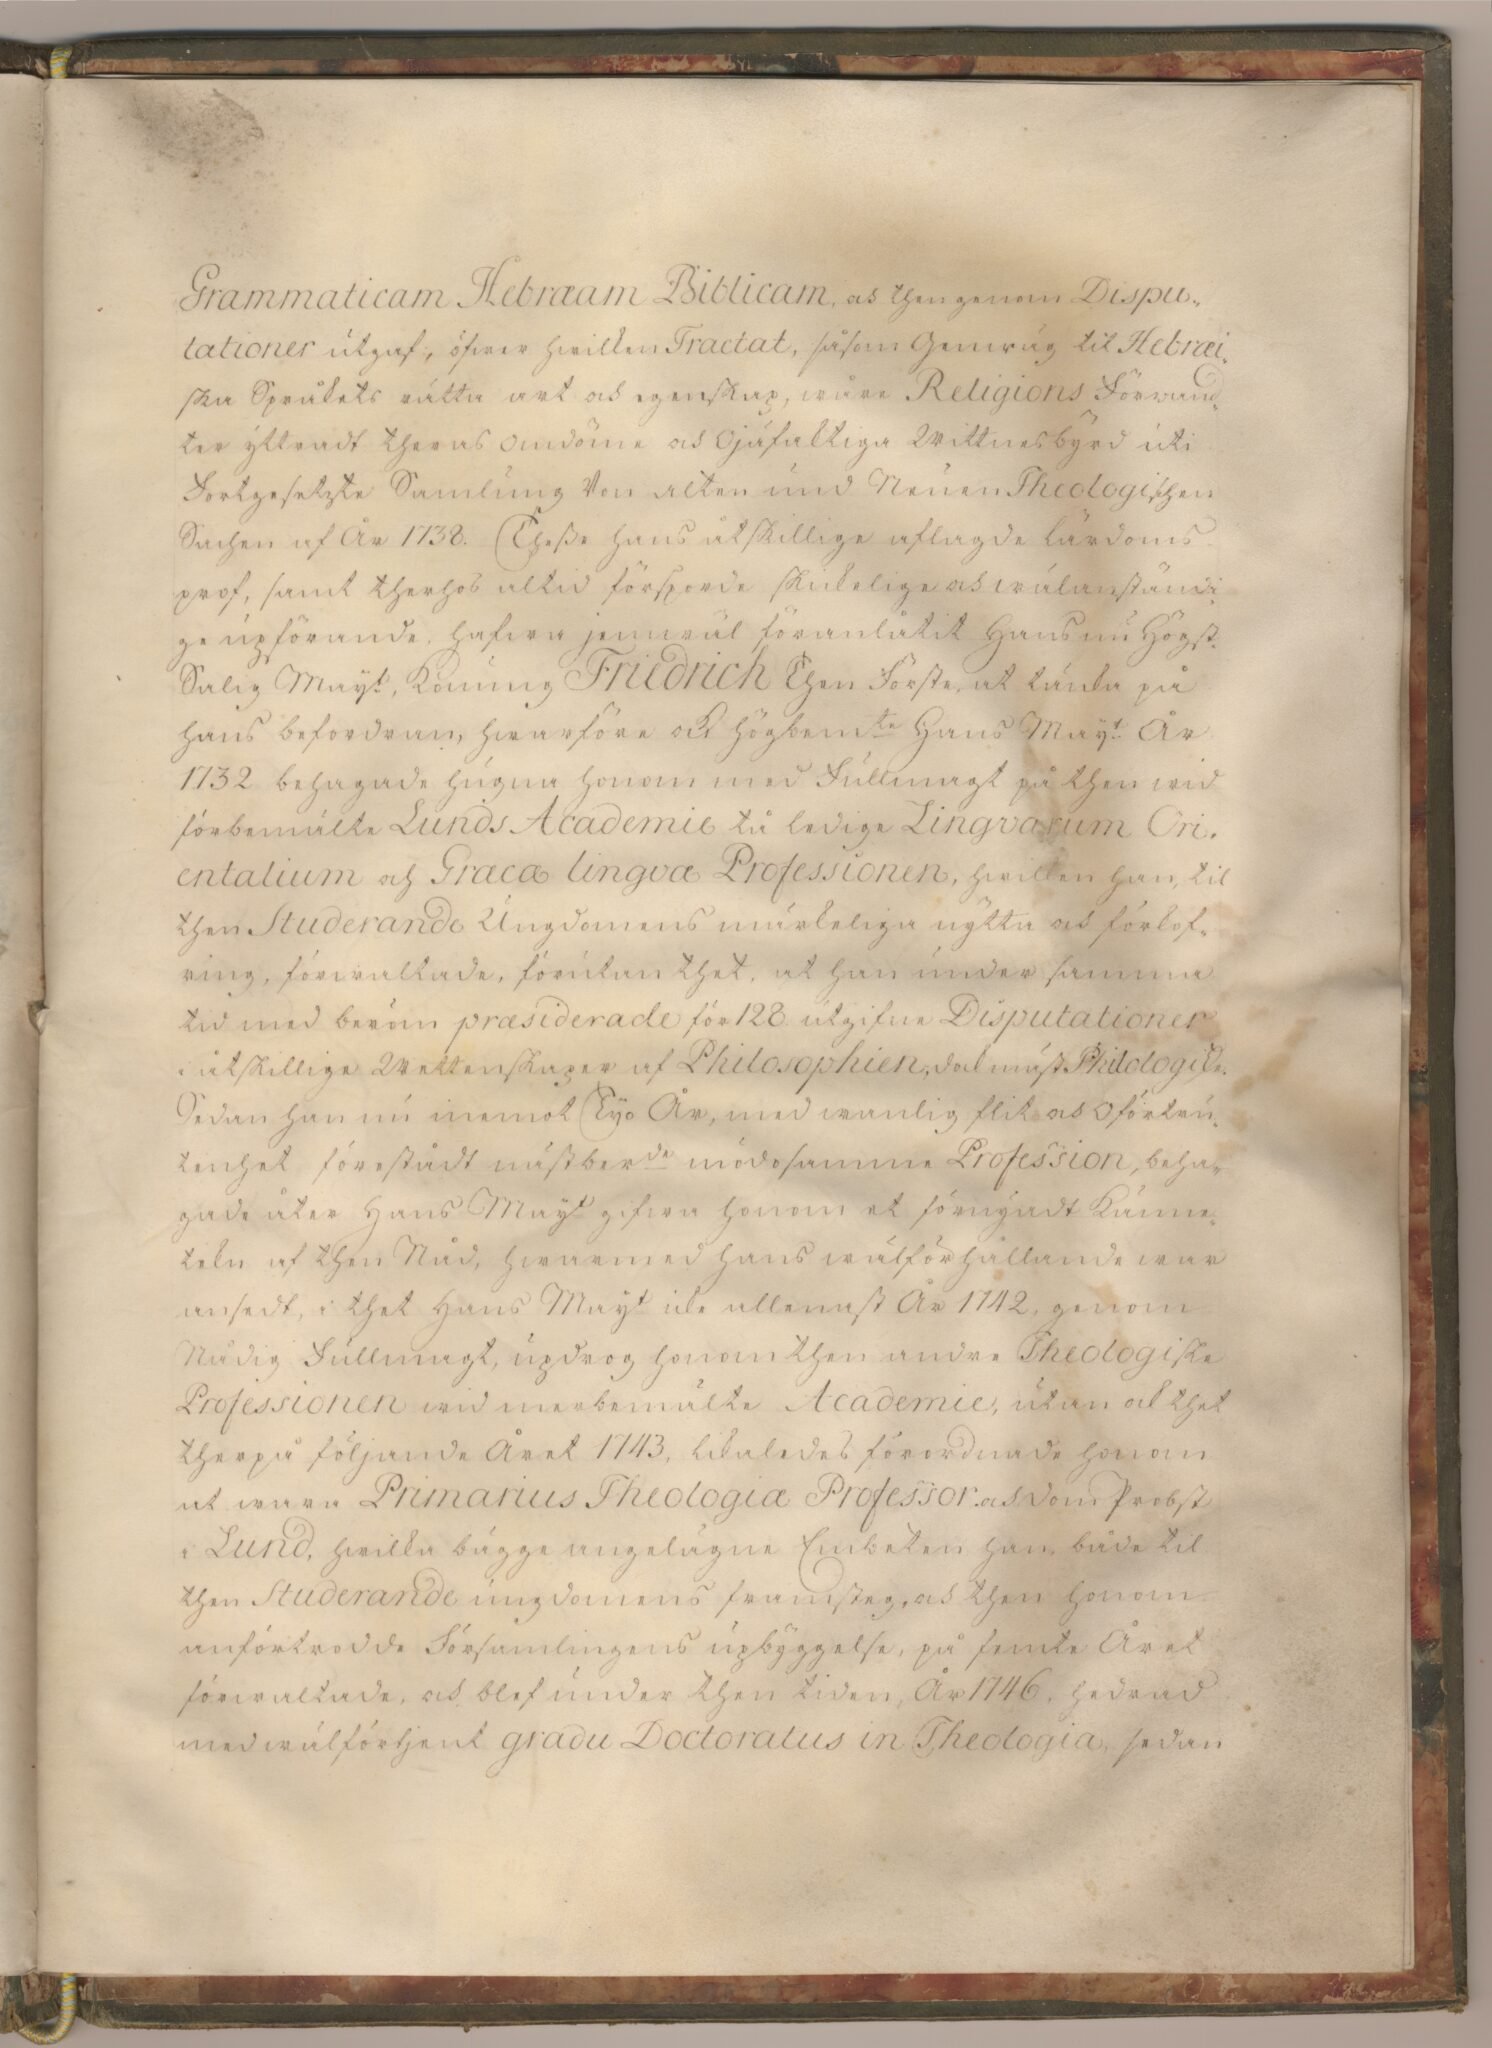 Grammaticam Hebræam Biblicam, as then genom Dispu-
tationer utgaf, öfwer hwilken Tractat, såsom Genwäg til Hebræi-
ska Språkets rätta art och egenskap, wåre Religions Förwand-
ter yttradt theras omdöme och Ojäfaktiga Wittnesbyrd uti
Fortgesetzte Samlung Von alten und Neuen Theologischen
Sachen af År 1738. Theße hans åtskillige aflagde Lärdoms
prof, samt therhos altid försporde skickelige och wälanständi-
ge upförande, hafwa jemwäl föranlåtit Hans nu Högst-
Salig Mayt, Konung Friedrich Then Förste, at tänka på
hans befordran, hwarföre ock högbemte Hans Mayt År
1732 behagade hugna honom med Fullmagt på then wid
förbemälte Lunds Academie tå ledige Lingvarum Ori-
entalium och Græcæ lingvæ Professionen, hwilken han, til
then Studerande Ungdomens märkeliga nytta och förkof-
ring, förwaltade, förutan thet, at han under samma
tid med beröm præsiderade för 128 utgifne Disputationer
i åtskillige Wettenskaper af Philosophien, dock mäst Philologiske.
Sedan han nu inemot Tyo År, med wanlig flit och Oförtru-
tenhet förestådt näst berde mödosamme Profession, beha-
gade åter Hans Mayt gifwa honom et förnyadt Känne-
tekn af then Nåd, hwarmed hans wälförhållande war
ansedt, i thet Hans Mayt icke allenast År 1742, genom
Nådig Fullmagt, updrog honom then andre Theologiske
Professionen wid merbemälte Academie, utan ock thet
therpå följande Året 1743, likaledes förordnade honom
at wara Primarius Theologiæ Professor och Dom Probst
i Lund, hwilka bägge angelägne Embeten han, både til
then Studerande ungdomens framsteg, och then honom
anförtrodde Församlingens upbyggelse, på femte Året
förwaltade, och blef under then tiden, År 1746, hedrad
med wälförtjent gradu Doctoratus in Theologia, sedan